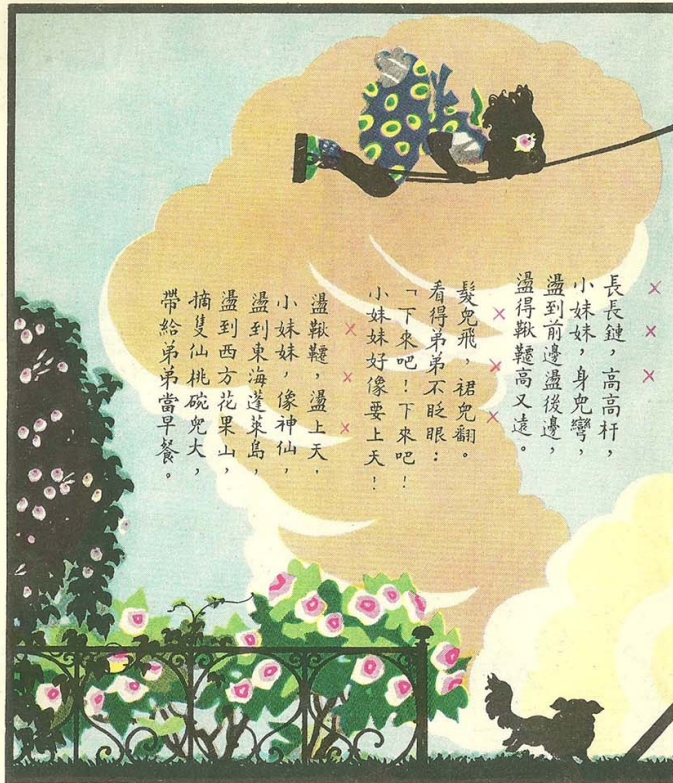 長長鏈，高高杆，
小妹妹，身兒彎，
盪到前邊盪後邊，
盪得鞦韆高又遠。
髮兒飛，裙兒翻。
看得弟弟不眨眼：
「下來吧！下來吧！
小妹妹好像要上天！
盪鞦韆，盪上天．
小妹妹，像神仙，
盪到東海蓬萊島，
盪到西方花果山，
摘隻仙桃碗兒大，
帶給弟弟當早餐。